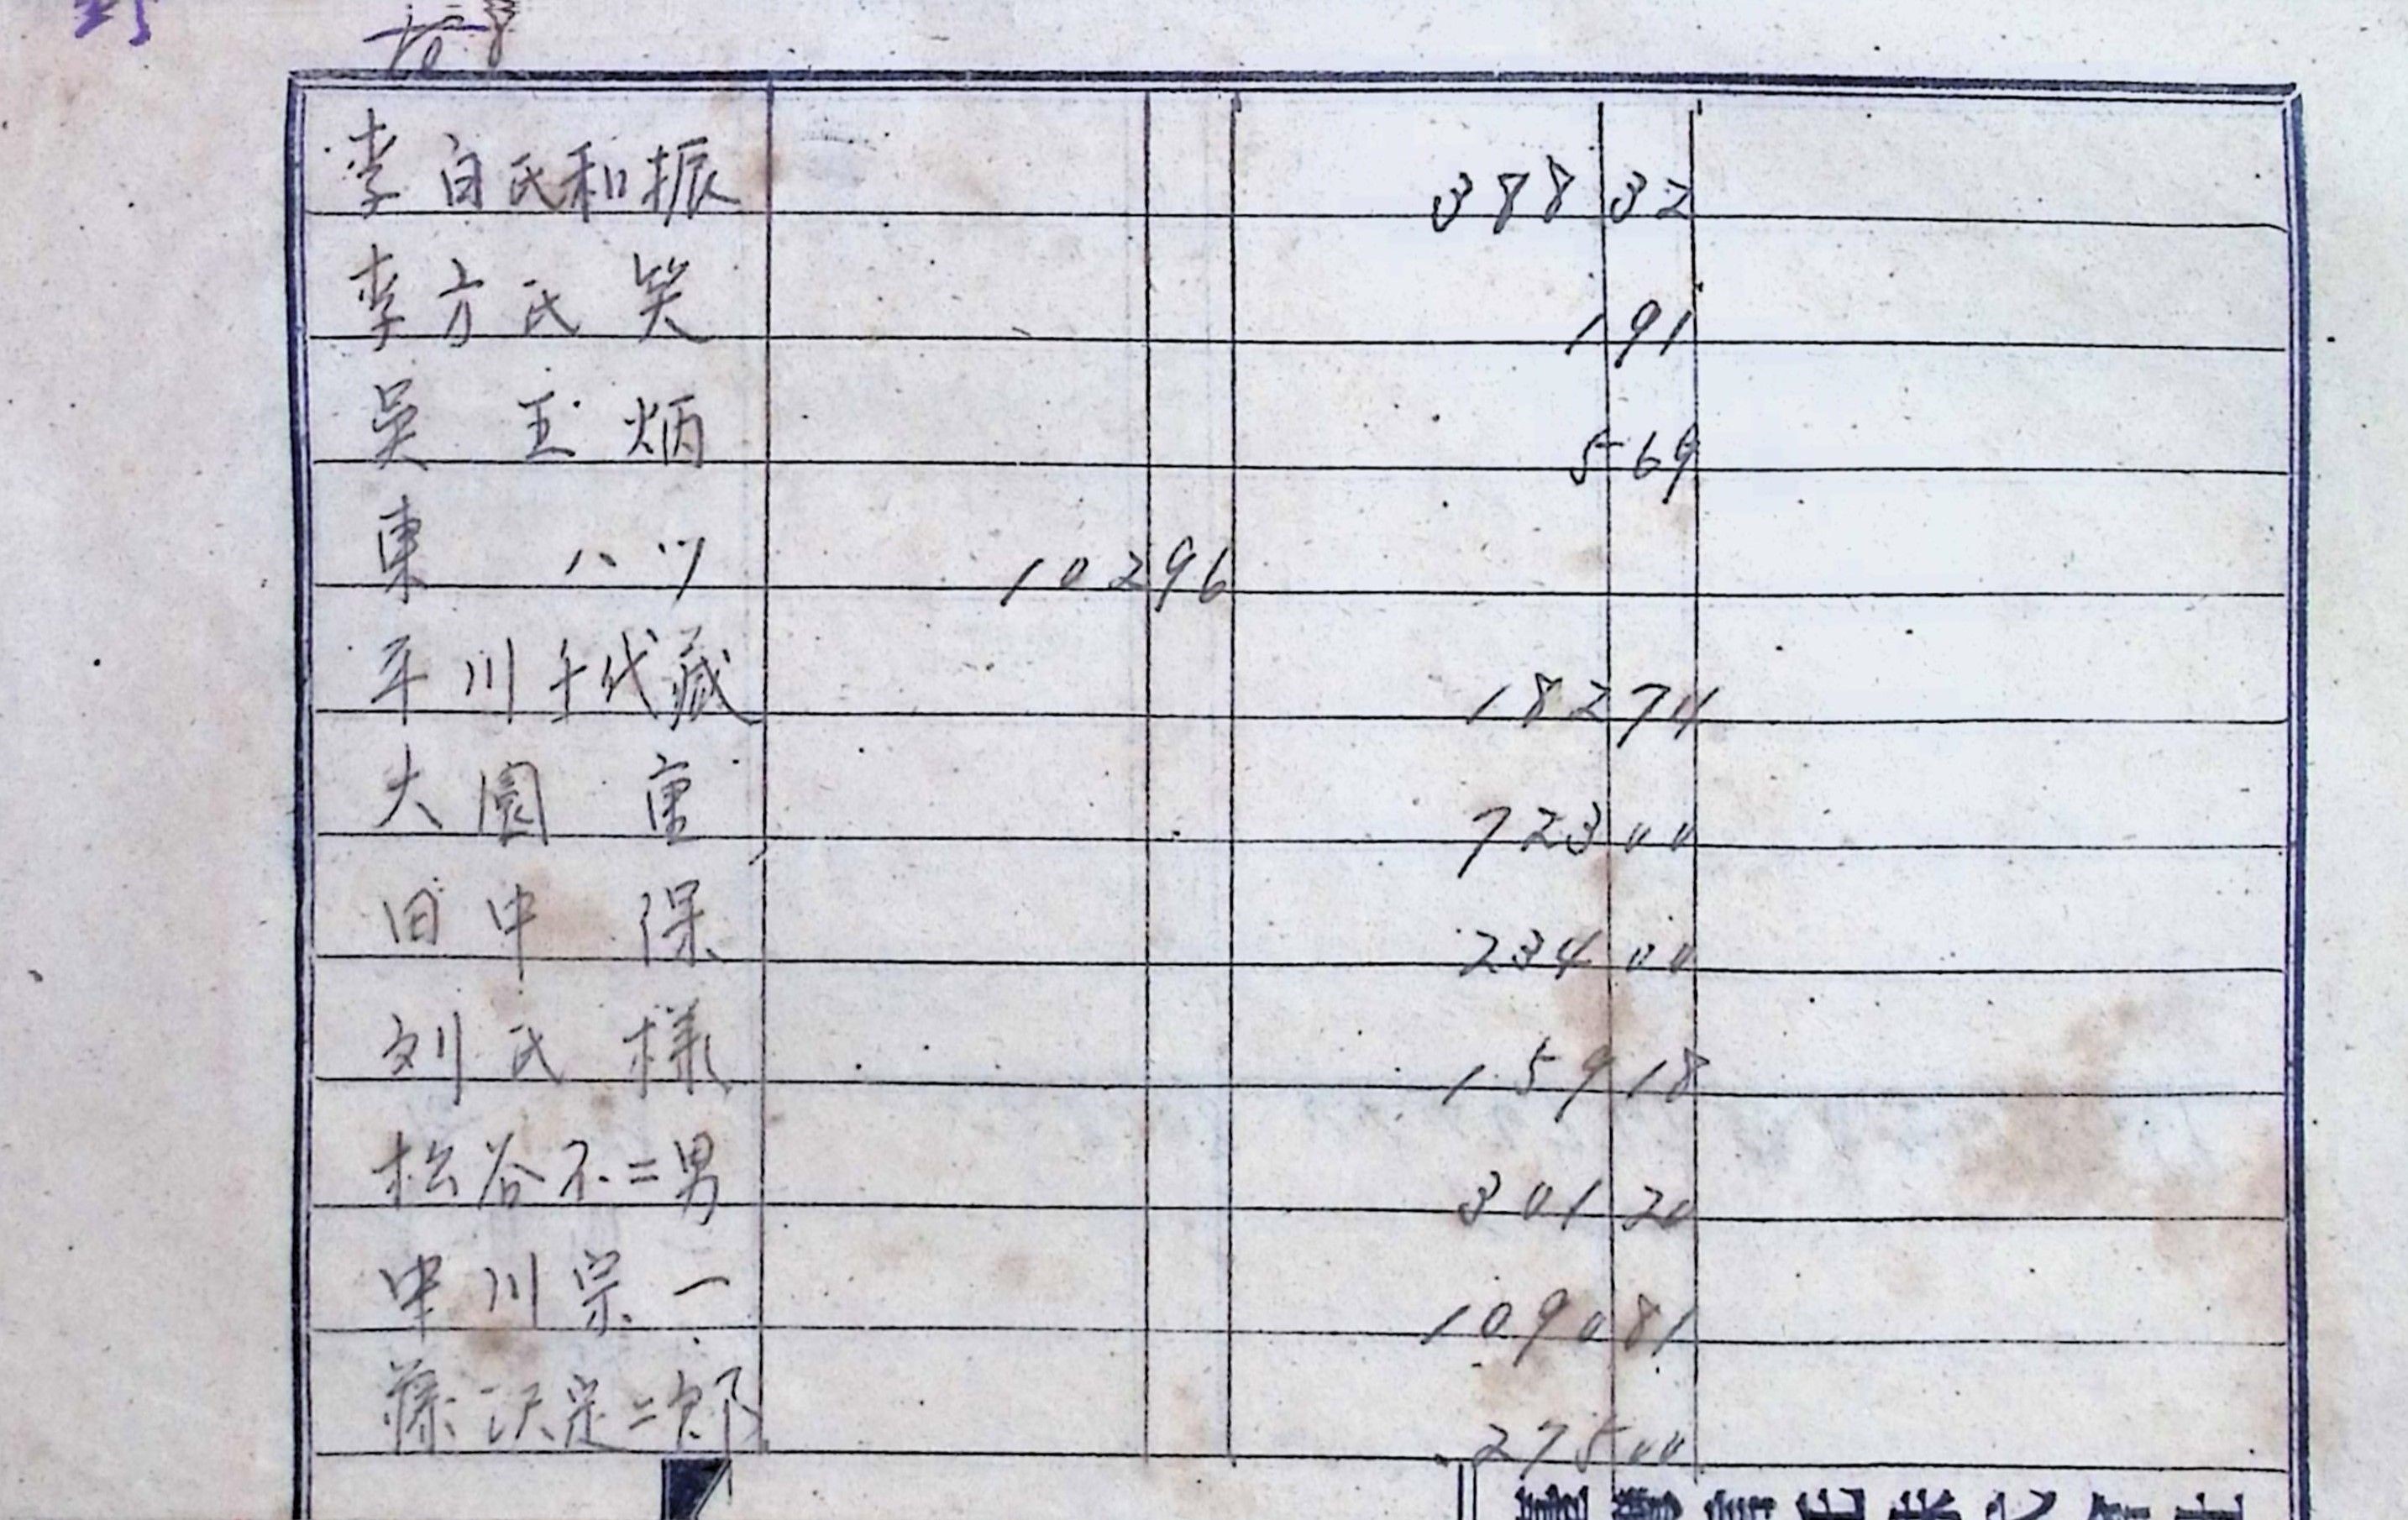 李白氏和振 388 32
李方氏笑 1 91
吳玉炳 5 69
東ハツ 102 96
平川千代藏 182 74
大園重 723 00
田中保 234 00
刘氏様 159 18
松谷不二男 301 20
中川宗一 1090 81
藤沢定二郎 275 00